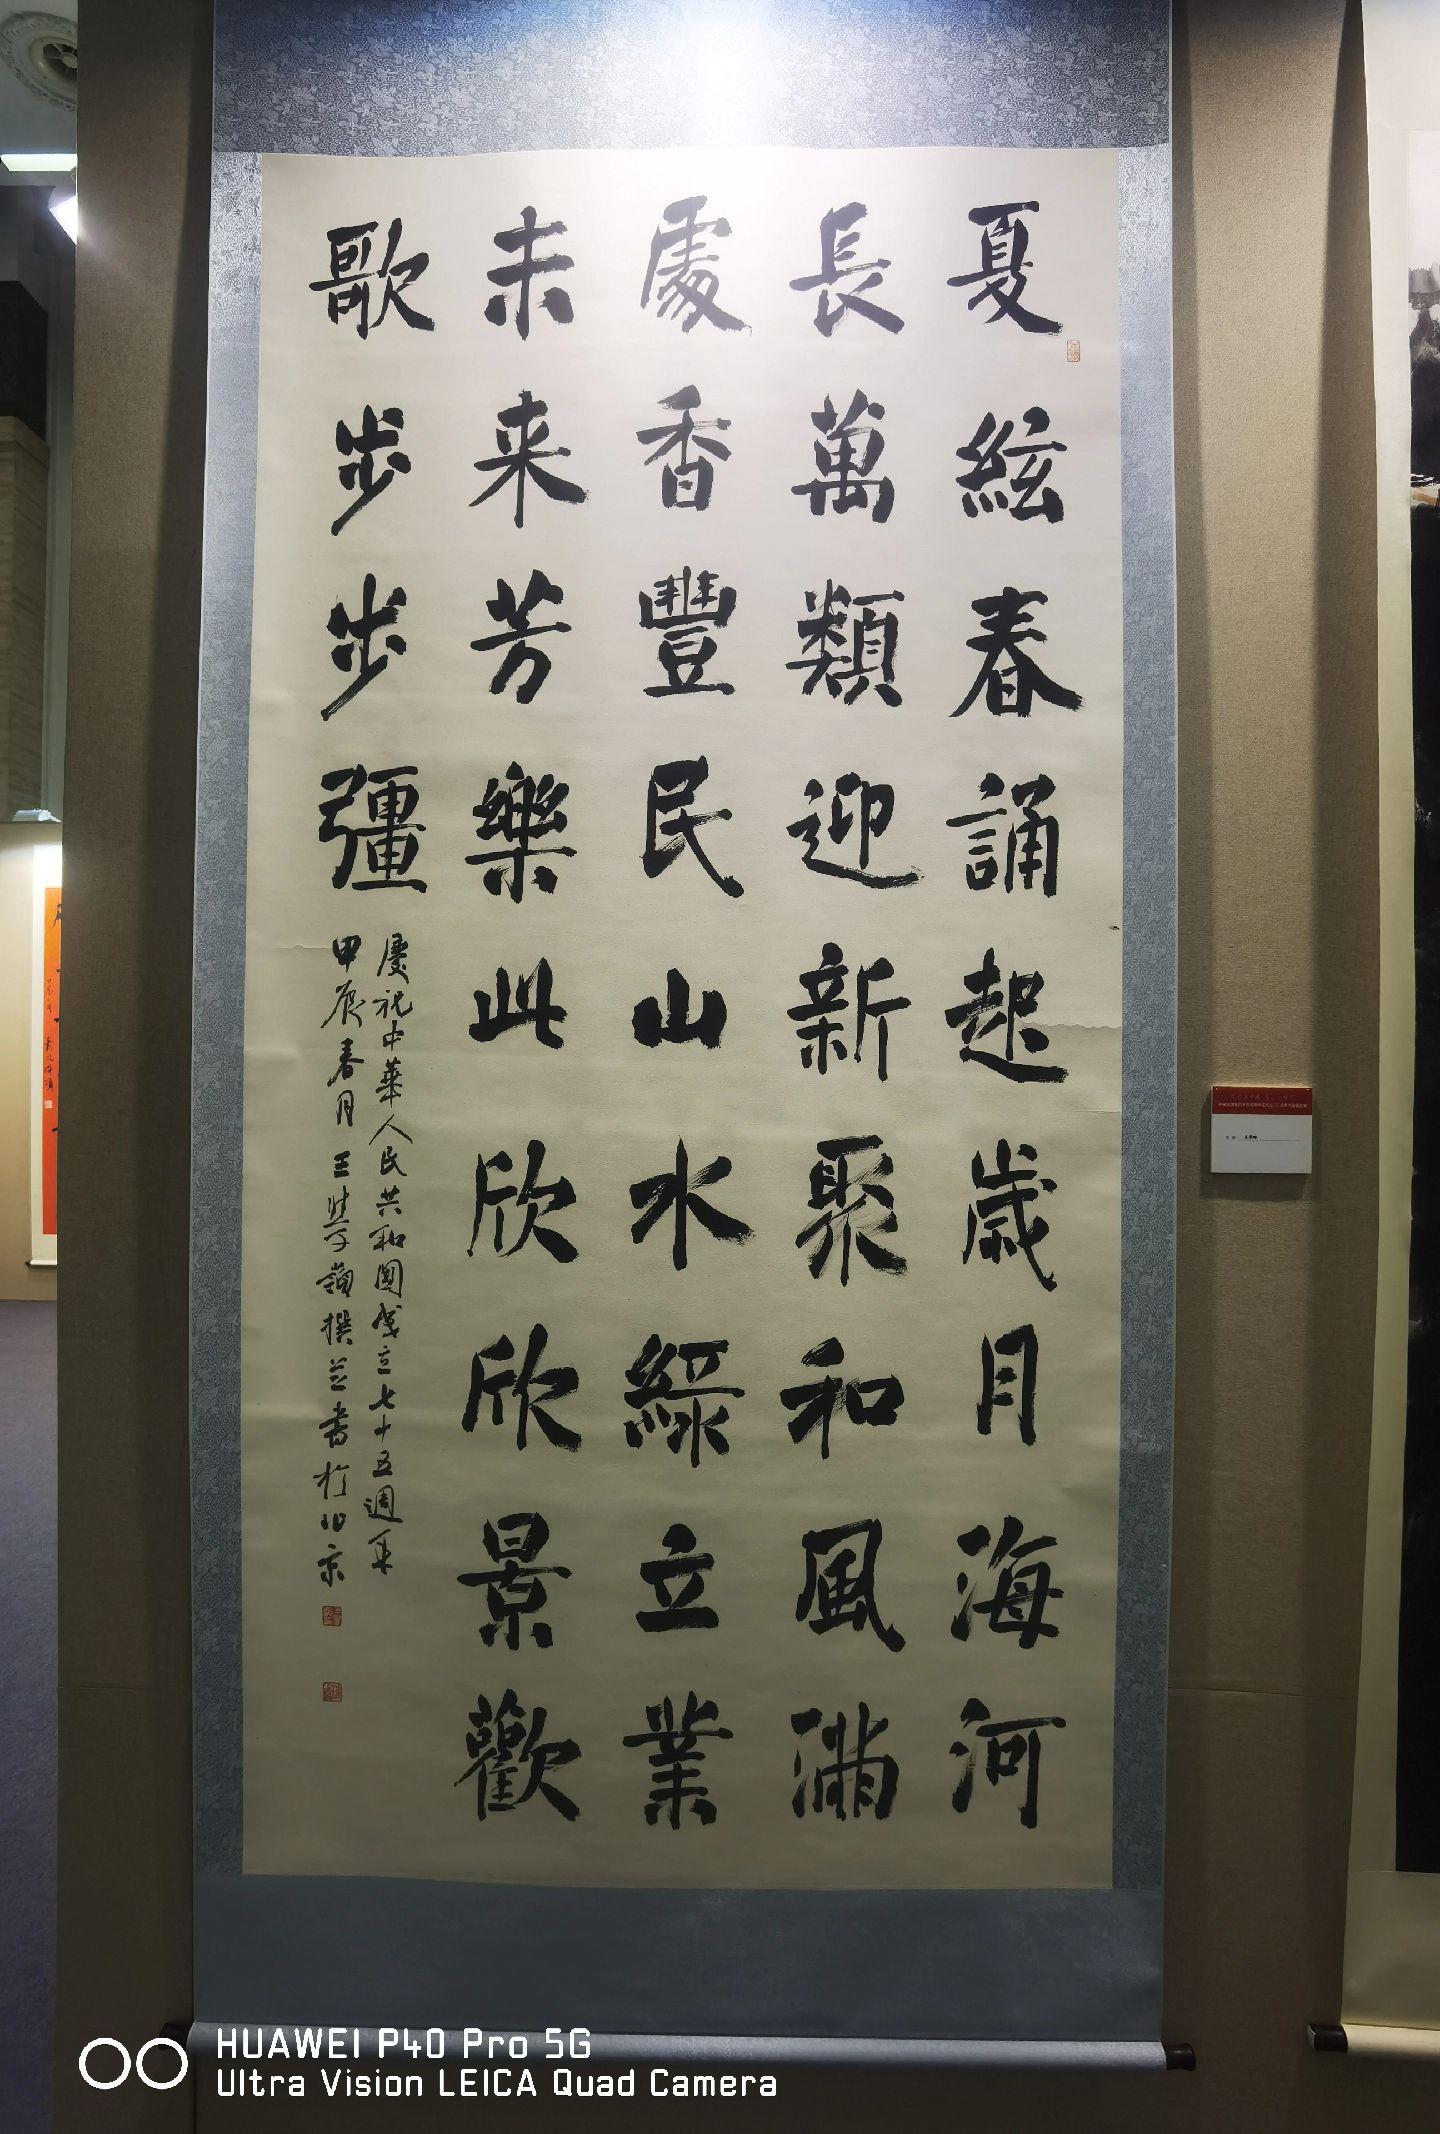 夏絃春誦起歲月海河
長萬類迎新聚和風滿
處香豐民山水綠立業
未来芳樂此欣欣景歡
歌步步彊
慶祝中華人民共和國成立七十五週年
甲辰春月王學嶺撰並書於北京
HUAWEI P40 Pro 5G
Ultra Vision LEICA Quad Camera